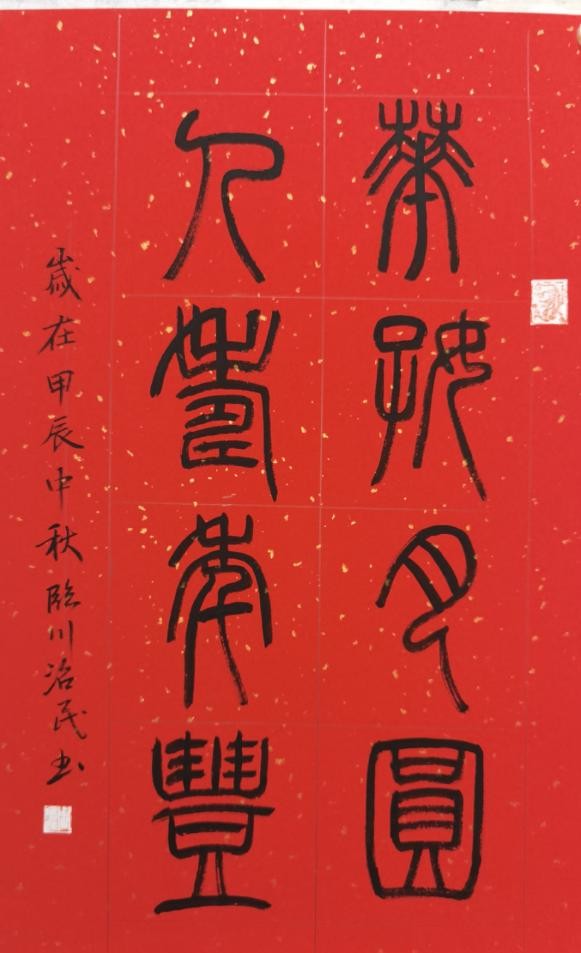 華好月圓
人壽年豐
歲在甲辰中秋臨川治民书